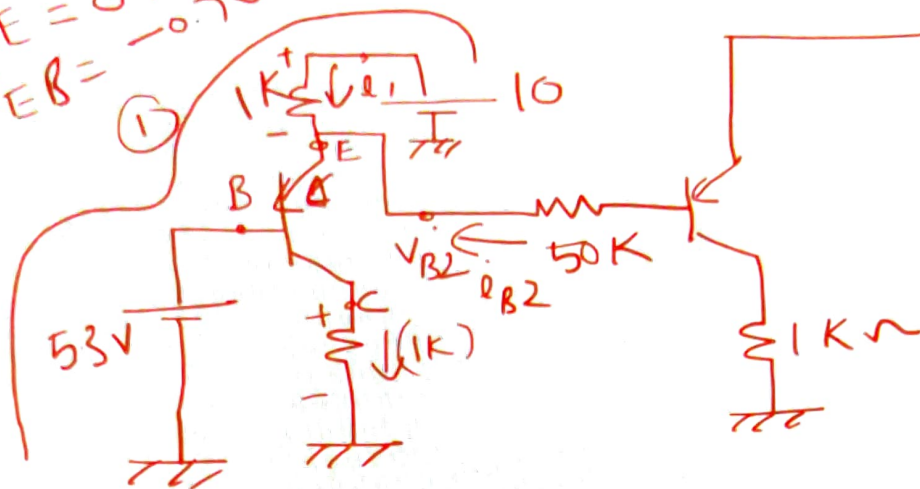 EB = -0.7
①
1K
+
i1
10
-
E
B
VB2
iB2
50K
53V
+
C
(1K)
-
1K